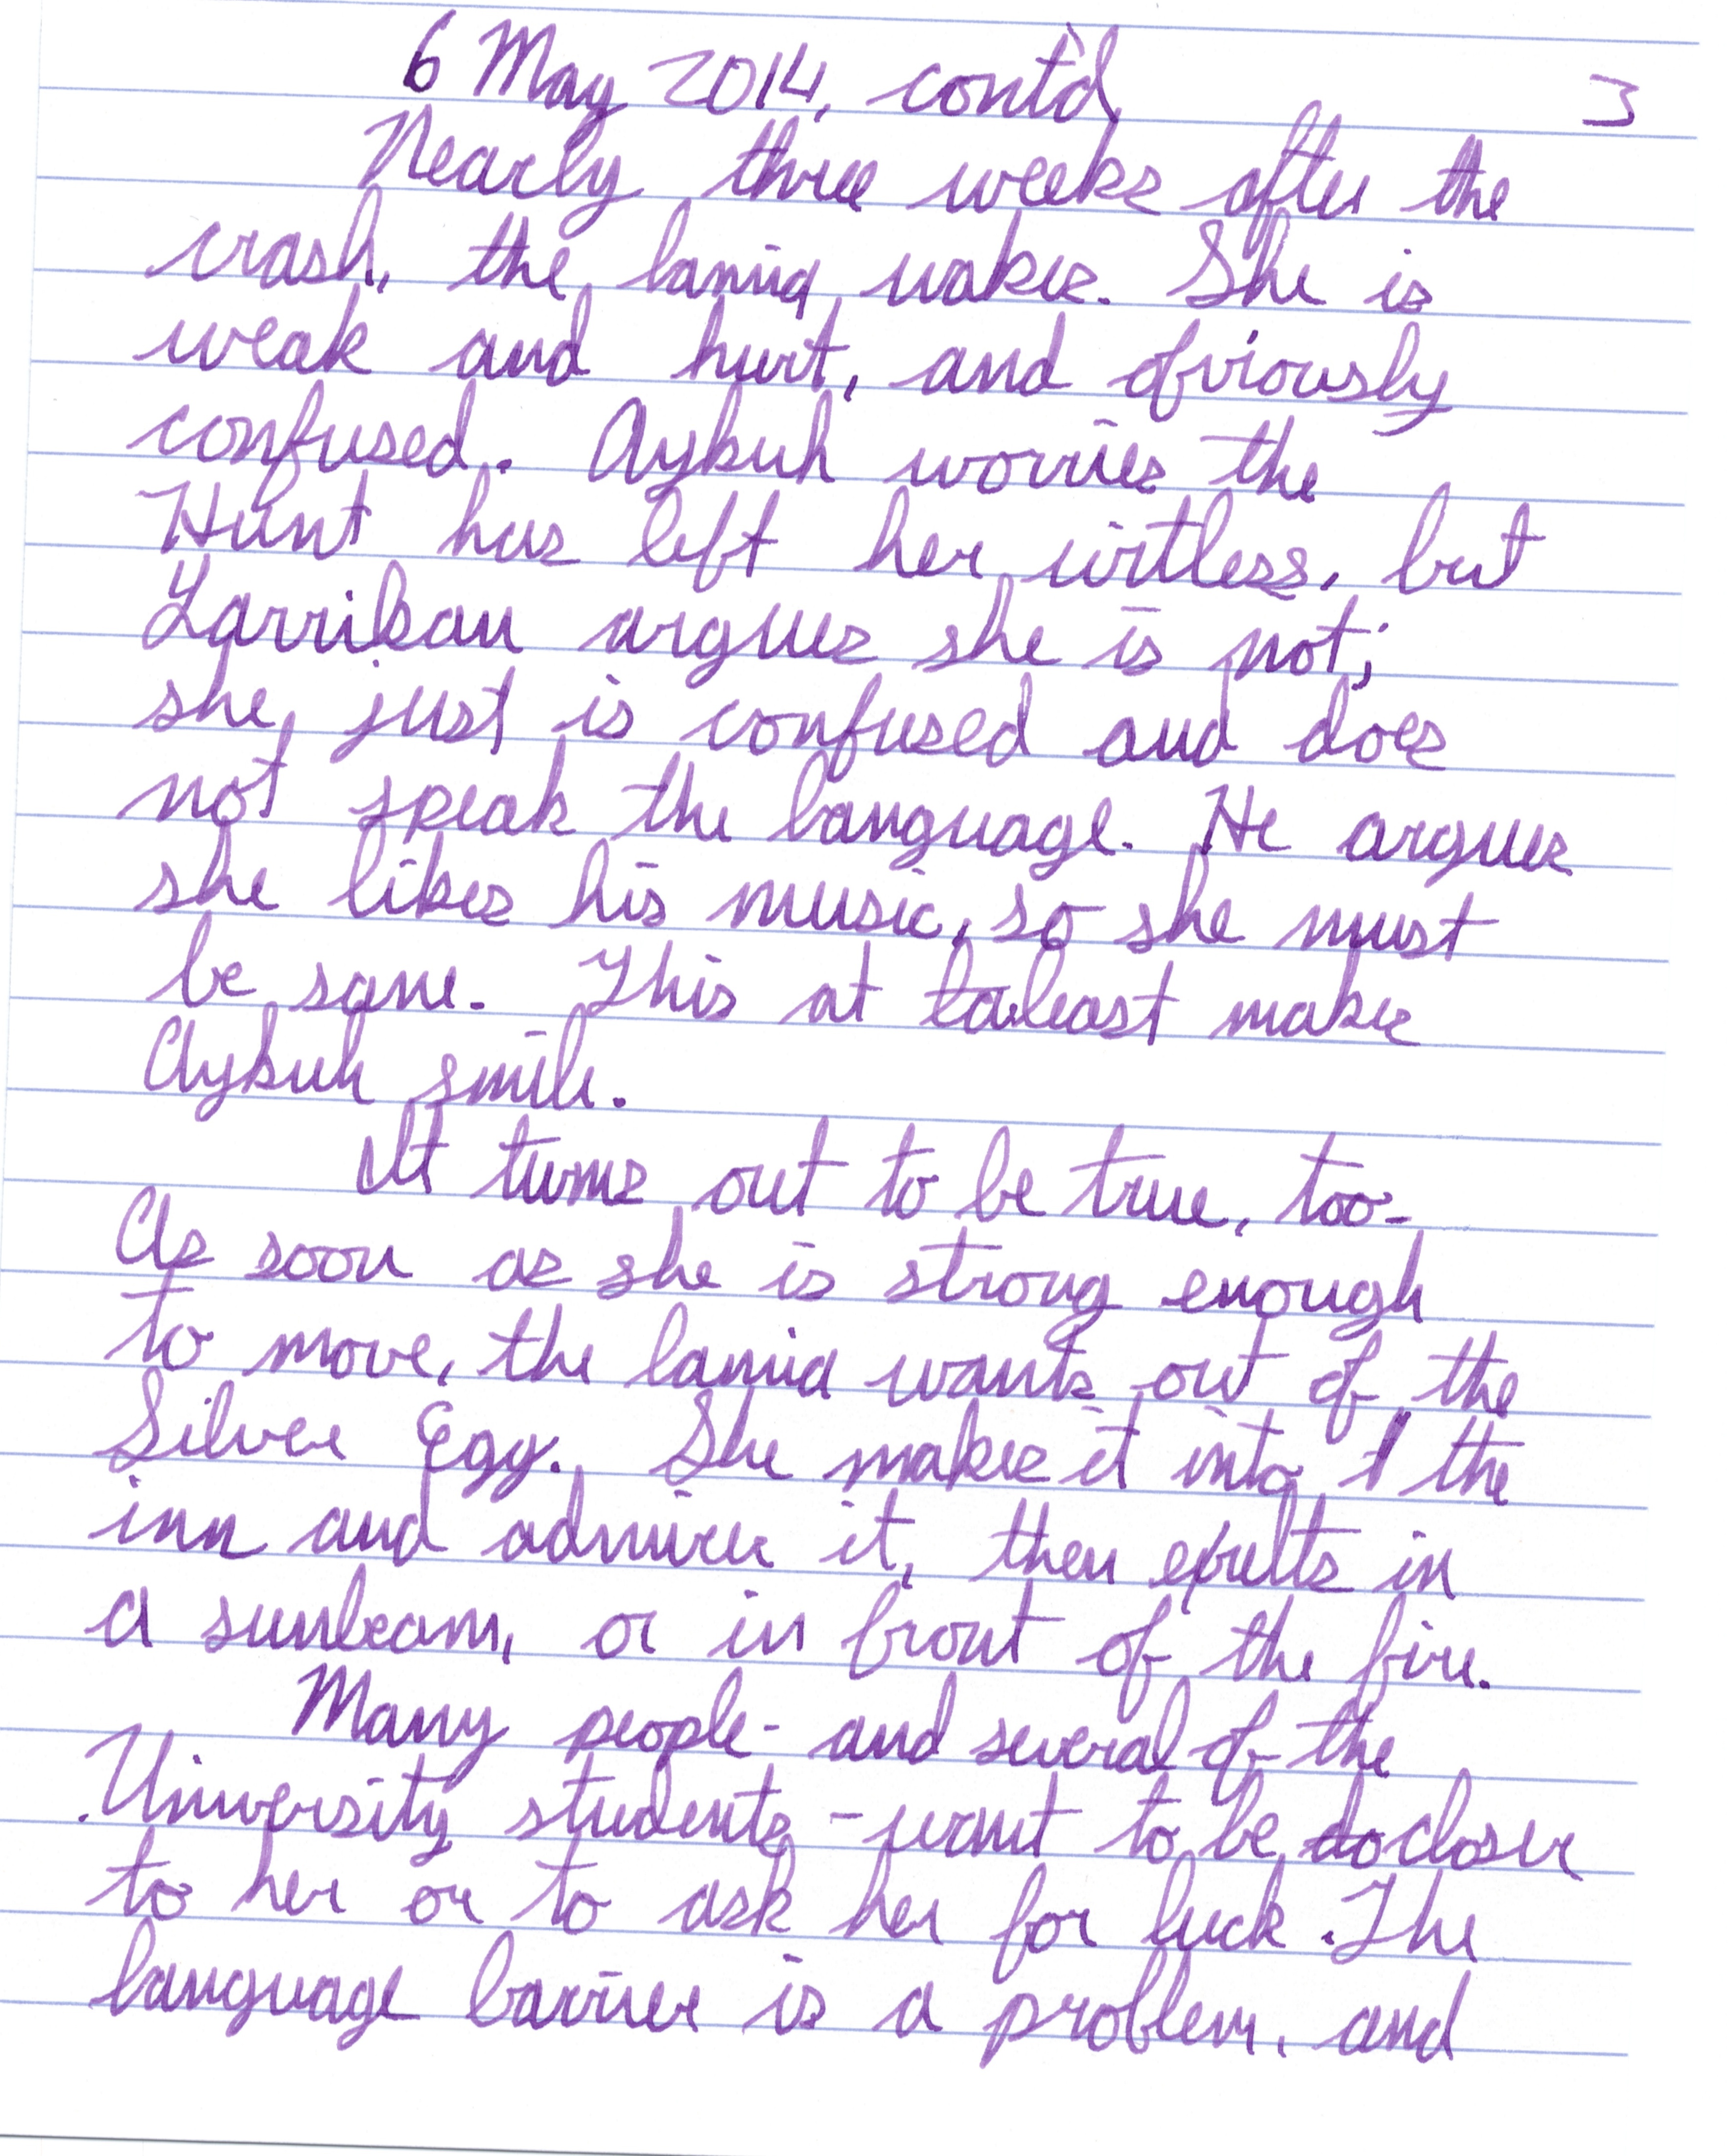 6 May 2014, cont'd 3
Nearly three weeks after the
crash, the lamia wakes. She is
weak and hurt, and obviously
confused. Aykuh worries the
Hunt has left her witless, but
Larrikan argues she is not;
she just is confused and does
not speak the language. He argues
she likes his music, so she must
be sane. This at least makes
Aykuh smile.
It turns out to be true, too.
As soon as she is strong enough
to move, the lamia wants out of the
Silver Egg. She makes it into the
inn and admires it, then exults in
a sunbeam, or in front of the fire.
Many people - and several of the
University students - want to be closer
to her or to ask her for luck. The
language barrier is a problem, and